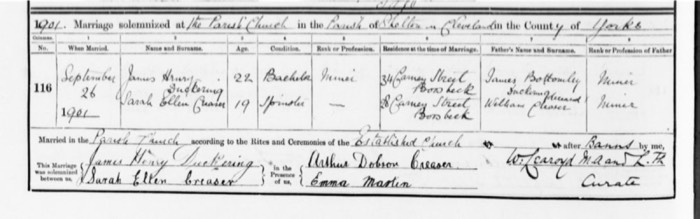 1901. Marriage solemnized at the Parish Church in the Parish of Skelton in Cleveland in the County of Yorks
Columns:— 1 2 3 4 5 6 7 8
No. When Married. Name and Surname. Age. Condition. Rank or Profession. Residence at the time of Marriage. Father's Name and Surname. Rank or Profession of Father
116 September 26 1901
James Henry Duckering 22 Bachelor Miner 34 Carney Street Boosbeck James Bottomley Duckering Miner
Sarah Ellen Creaser 19 Spinster — Carney Street Boosbeck William Creaser Miner
Married in the Parish Church according to the Rites and Ceremonies of the Established Church after Banns by me,
This Marriage was solemnized between us, James Henry Duckering Sarah Ellen Creaser in the Presence of us, Arthur Dobson Creaser Emma Maston W. Learoyd M A and L.Th Curate